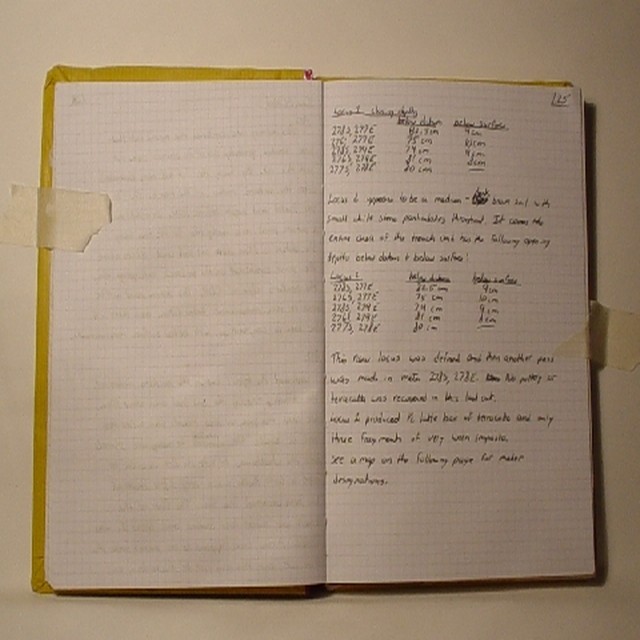 125
Locus 1 closing depths
below datum below surface
278S, 277E 82.5cm 4cm
276S, 277E 75 cm 10cm
278S, 274E 74 cm 9cm
276S, 274E 81 cm 8cm
277S, 278E 80 cm —
Locus 2 appears to be a medium - dark brown soil with
small white stone particulates throughout. It covers the
entire area of the trench and has the following opening
depths below datum + below surface:
Locus 2 below datum below surface
278S, 277E 82.5 cm 4cm
276S, 277E 75 cm 10cm
278S, 274E 74 cm 9cm
276S, 274E 81 cm 8cm
277S, 278E 80 cm —
This new locus was defined and then another pass
was made in meter 278S, 278E. No pottery or
terracotta was recovered in this
Locus 2 produced 1/2 little box of terracotta and only
three fragments of very worn impasto.
See a map on the following page for meter
designations.